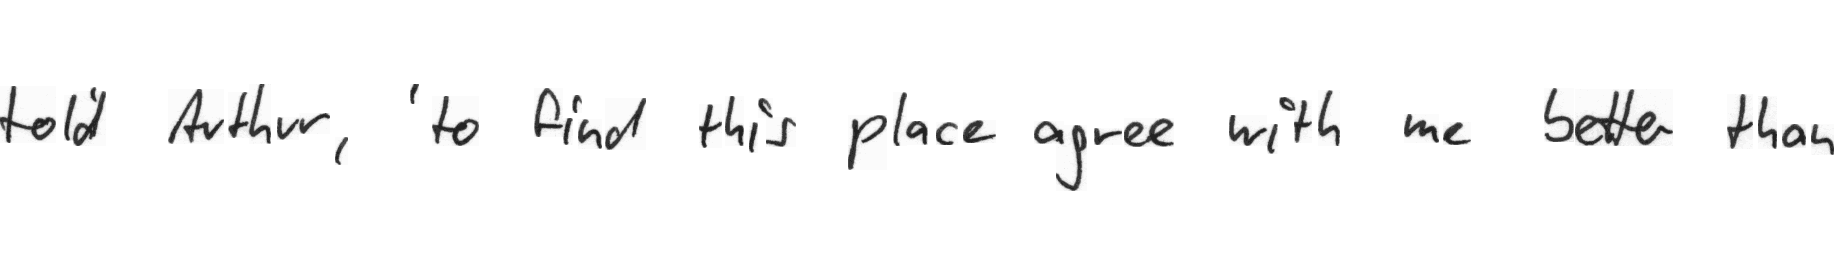 told Arthur, 'to find this place agree with me better than